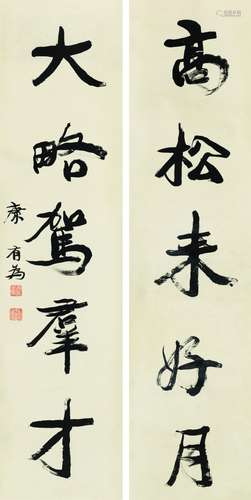 高松来好月
大略駕羣才
康有為